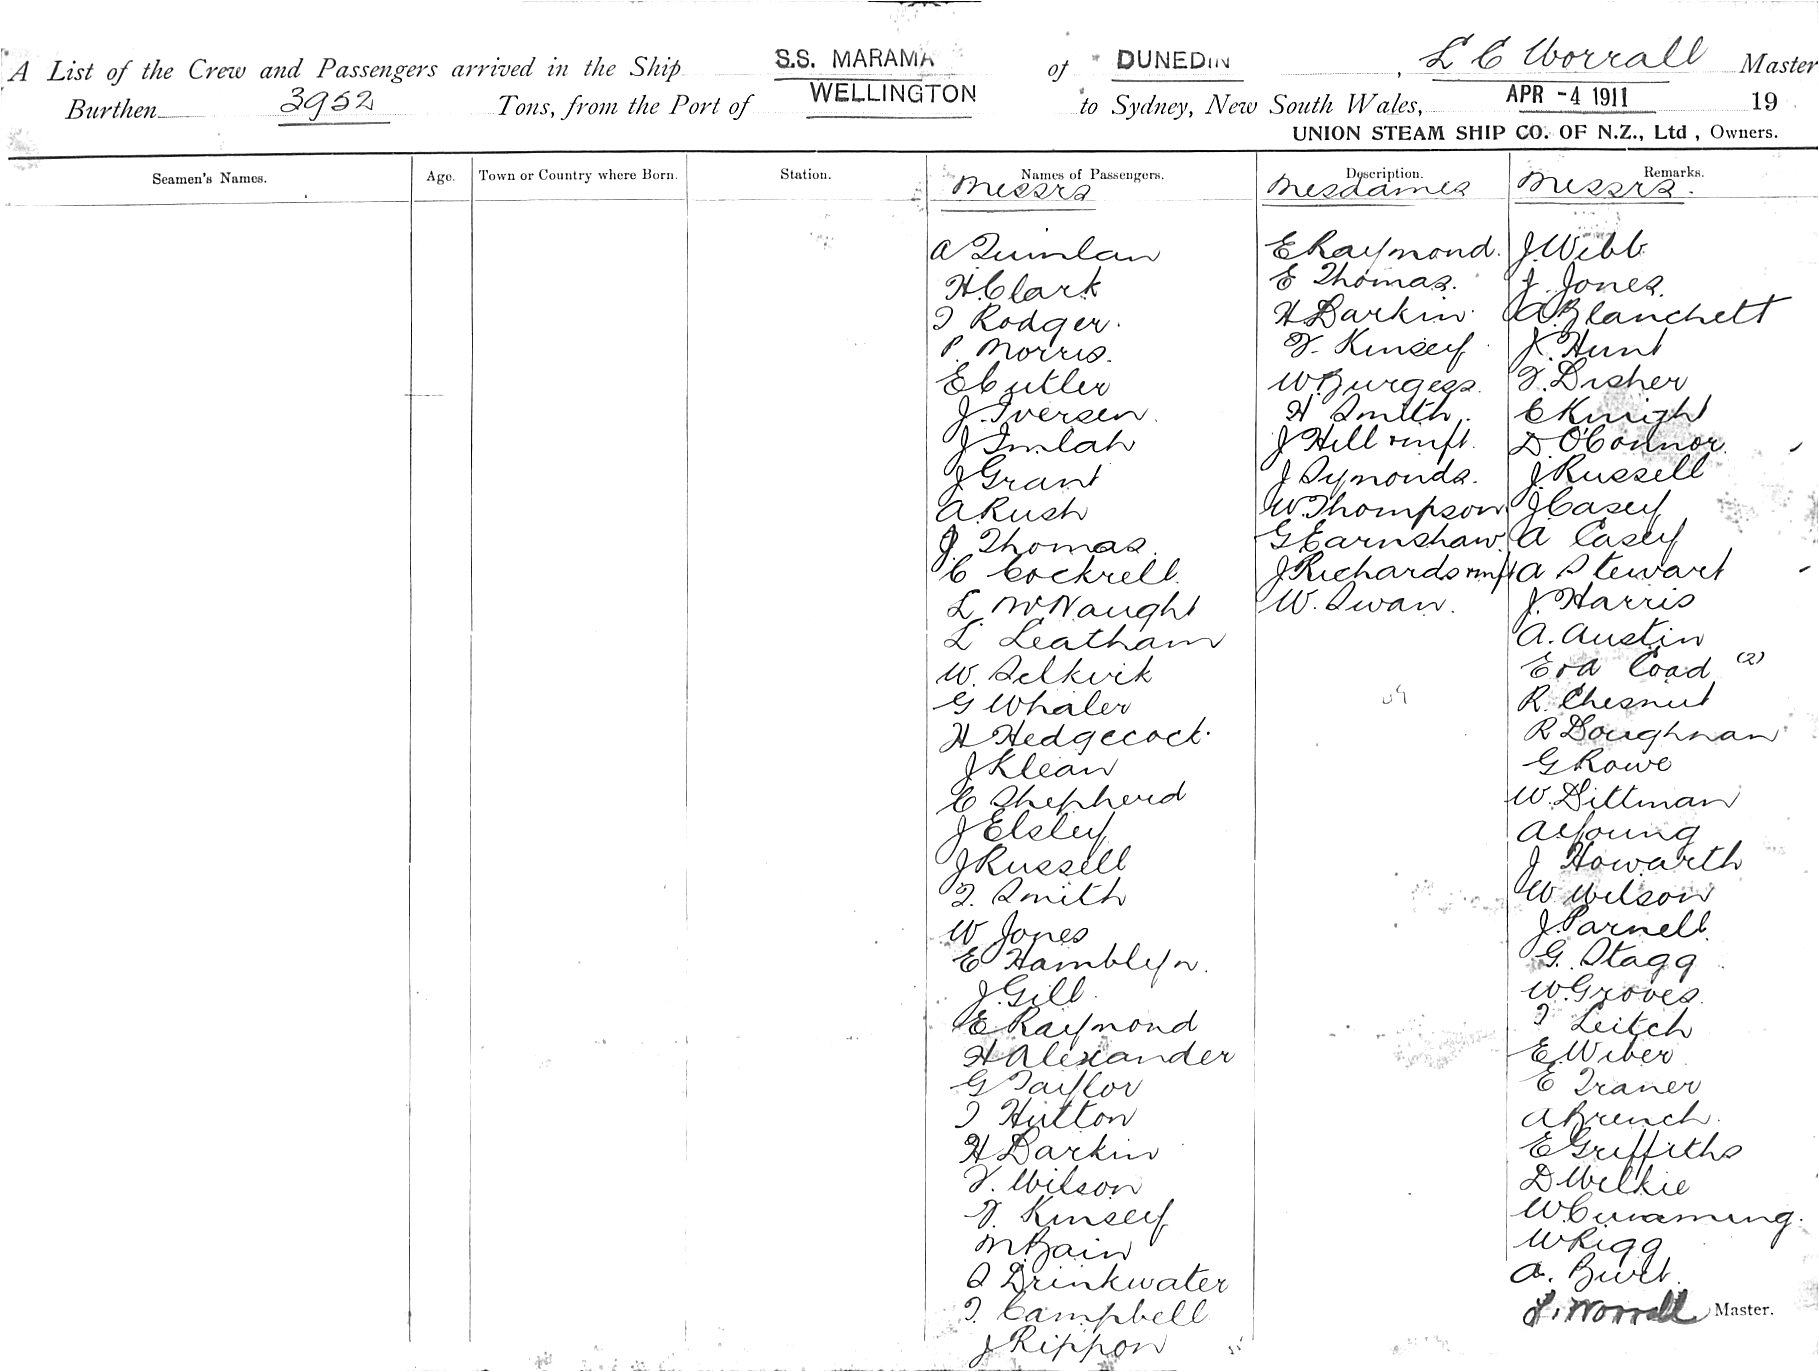 A List of the Crew and Passengers arrived in the Ship S.S. MARAMA of DUNEDIN, L C Worrall Master
Burthen 3952 Tons, from the Port of WELLINGTON to Sydney, New South Wales, APR -4 1911 19
UNION STEAM SHIP CO. OF N.Z., Ltd, Owners.
Seamen's Names. Age. Town or Country where Born. Station. Names of Passengers. Description. Remarks.
Messrs
A Quinlan
H. Clark
T Rodger.
P. Morris.
E Cutler
J. Iversen.
J Imlah
J Grant
A Rush
J. Thomas.
C Cockrell.
L McNaught
L Leatham
W. Selkirk
G Whaler
H Hedgecock.
J Klean
C Shepherd
J Elsley
J Russell
T. Smith
W Jones
E Hamblyn.
J. Gill.
E Raymond
H Alexander
G Taylor
T Hutton
H Darkin
F. Wilson
F. Kinsey
M. Bain
Drinkwater
T. Campbell
J Rippon
Mesdames
E Raymond.
E Thomas.
H Darkin.
F. Kinsey
W. Burgess.
H Smith.
J Hill + inft.
J Symonds.
W. Thompson
G Earnshaw.
J Richards + inft
W. Swan.
Messrs.
J. Webb
J. Jones.
A. Blanchett
J. Hunt
F. Disher
C Knight
D. O'Connor.
J. Russell
J Casey
A Casey
A Stewart
J. Harris
A. Austin
E + A Coad (2)
R. Chesnut
R Doughnan
G Rowe
W. Dittman
A Young
J Howarth
W Wilson
J. Parnell.
G. Stagg
W. Groves.
T Leitch
E. Wiber
E Traner
A French.
E Griffiths
D Wilkie
W. Cumming.
W Rigg
A. Burt.
L. Worrall Master.